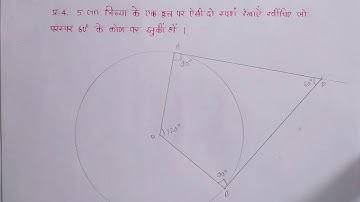 प्र-4. 5 cm त्रिज्या के एक वृत्त पर ऐसी दो स्पर्श रेखाएँ खींचिए जो
परस्पर 60° के कोण पर झुकी हों ।
A
90°
60°
P
O
120°
90°
B